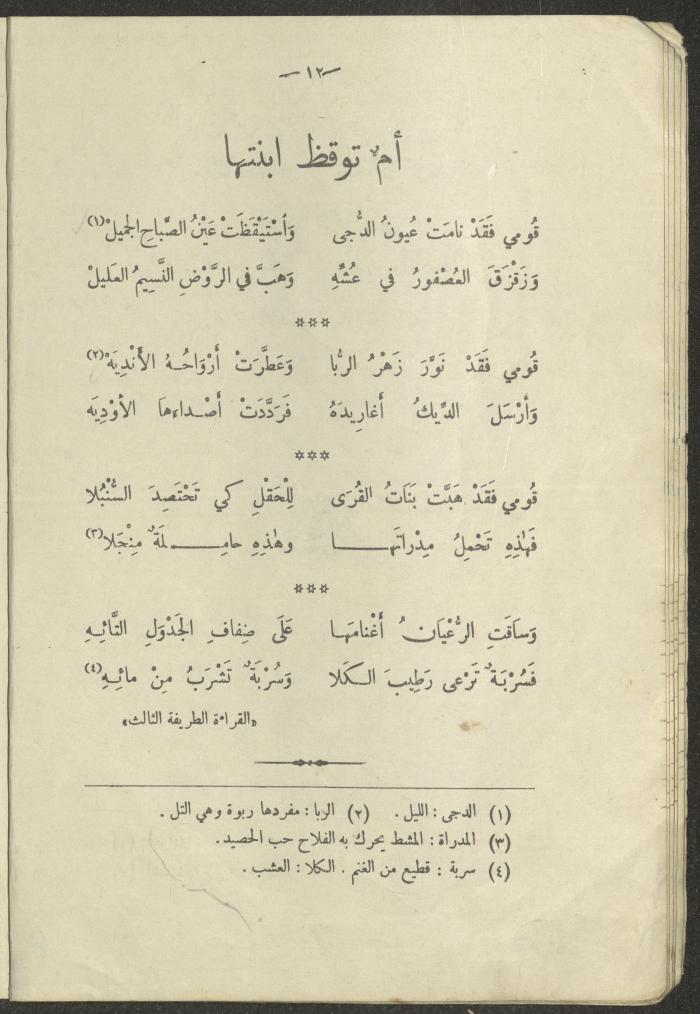 — ١٢ —
أمٌ توقظ ابنتها
قُومي فَقَدْ نامَتْ عُيونُ الدُّجى وَاسْتَيْقَظَتْ عَيْنُ الصَّباحِ الجميلْ (١)
وَزَقْزَقَ العُصْفورُ في عُشِّهِ وَهَبَّ في الرَّوْضِ النَّسيمُ العَليلْ
***
قُومي فَقَدْ نَوَّرَ زَهْرُ الرُّبا وَعَطَّرَتْ أَرْوَاحُهُ الأَنْدِيَهْ (٢)
وَأَرْسَلَ الدِّيكُ أَغارِيدَهُ فَرَدَّدَتْ أَصْداءَهَا الأَوْدِيَه
***
قُومي فَقَدْ هَبَّتْ بَنَاتُ القُرَى لِلْحَقْلِ كي تَحْتَصِدَ السُّنْبُلا
فَهٰذِهِ تَحْمِلُ مِدْراتَهَا وهٰذِهِ حامِلَةٌ مِنْجَلا (٣)
***
وَسَاقَتِ الرُّعْيَانُ أَغْنامَهَا عَلَى ضِفافِ الجَدْوَلِ التَّائِهِ
فَسُرْبَةٌ تَرْعى رَطِيبَ الكَلا وَسُرْبَةٌ تَشْرَبُ مِنْ مائِهِ (٤)
«القراءة الطريفة الثالث»
(١) الدجى : الليل . (٢) الربا : مفردها ربوة وهي التل .
(٣) المدراة : المشط يحرك به الفلاح حب الحصيد .
(٤) سربة : قطيع من الغنم . الكلا : العشب .